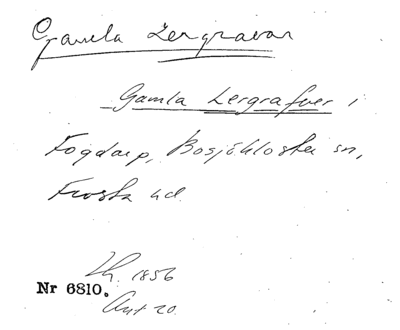 Gamla Lergravar
Gamla Lergrafver i
Fogdarp, Bosjökloster sn,
Frosta hd.
Lh. 1856
Nr 6810.
Ant 20.